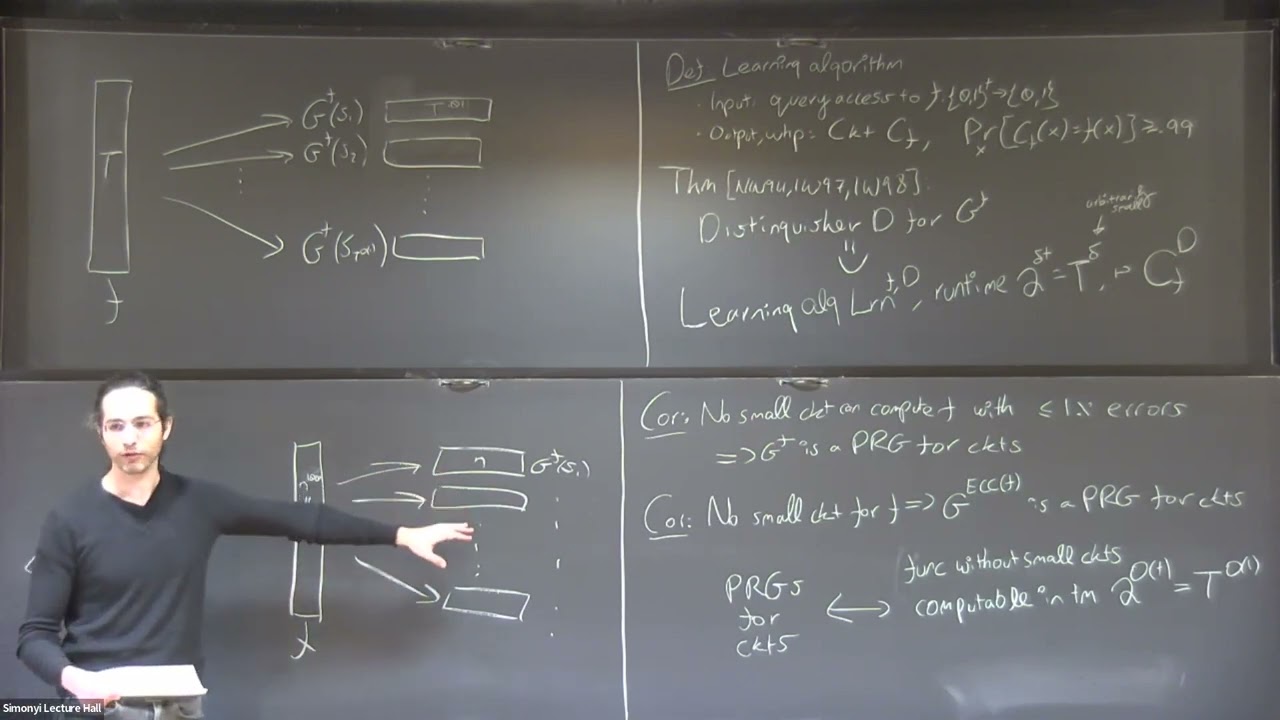 T
f
G^f(s_1)
T^.001
G^f(s_2)
Def Learning algorithm
· Input: query access to f:{0,1}^t→{0,1}
· Output, whp: Ckt C_f, Pr_x[C_f(x)=f(x)]≥.99
Thm [NW94,IW97,IW98].
Distinguisher D for G^f
arbitrarily
small
Learning alg Lrn^{f,D}, runtime 2^{δt}=T^δ, C_f^D
n
G^f(s_1)
f
Cor: No small ckt can compute f with ≤1% errors
=> G^f is a PRG for ckts
Cor: No small ckt for f => G^{ECC(f)} is a PRG for ckts
PRGs
for
ckts
func without small ckts
computable in tm 2^{O(t)}=T^{O(1)}
Simonyi Lecture Hall